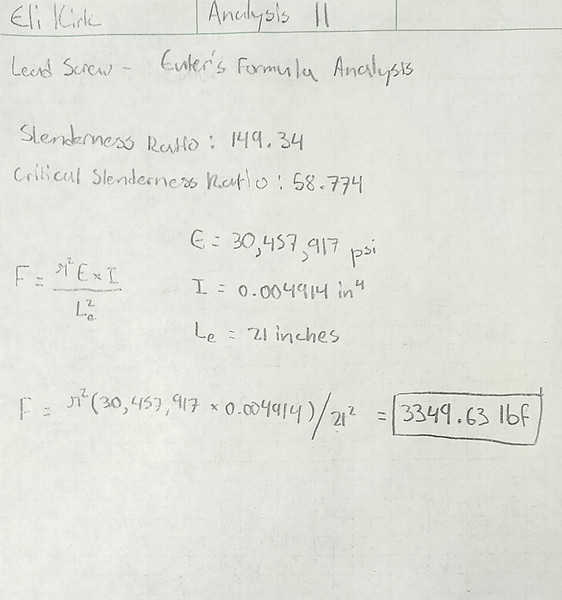 Eli Kirk Analysis 11
Lead Screw - Euler's Formula Analysis
Slenderness Ratio: 149.34
Critical Slenderness Ratio: 58.774
E = 30,457,917 psi
F = π²E×I / Lₑ²
I = 0.004914 in⁴
Lₑ = 21 inches
F = π²(30,457,917 × 0.004914)/21² = 3349.63 lbf